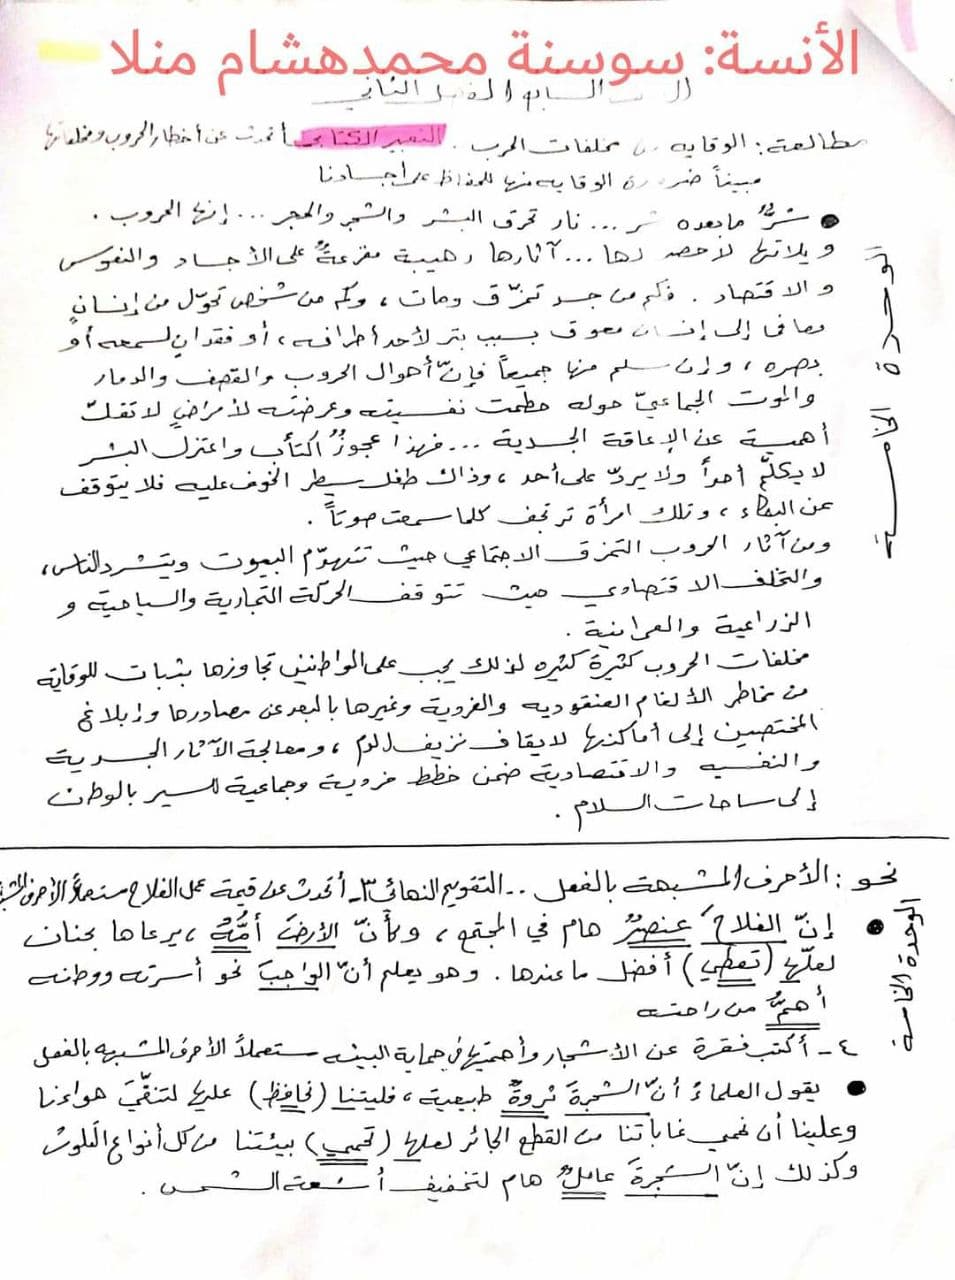 الأنسة: سوسنة محمدهشام منلا
السابع الفصل الثاني
مطالعة: الوقاية من مخلفات الحرب. التعبير الكتابي أتحدث عن أخطار الحروب ومخلفاتها
مبيناً ضرورة الوقاية منها للحفاظ على أجسادنا
شرٌّ مابعده شر... نار تحرق البشر والشجر والحجر... إنها الحروب.
ويلاتها لا حصر لها... آثارها رهيبة مفزعةٌ على الأجساد والنفوس
والاقتصاد. فكم من جسد تمزّق ومات، وكم من شخص تحوّل من إنسانٍ
معافى إلى إنسان معوق بسبب بتر لأحد أطرافه، أو فقدانٍ لسمعه أو
بصره، وإن سلم منها جميعاً فإنّ أهوال الحروب والقصف والدمار
والموت الجماعيّ حوله حطمت نفسيته وعرضته لأمراضٍ لا تقلّ
أهمية عن الإعاقة الجسدية... فهذا عجوزٌ اكتأب واعتزل البشر
لا يكلّم أحداً ولا يردّ على أحد، وذاك طفل سيطر الخوف عليه فلا يتوقف
عن البكاء، وتلك امرأة ترتجف كلما سمعت صوتاً.
ومن آثار الحروب التمزق الاجتماعي حيث تتهدّم البيوت ويتشرد الناس،
والتخلف الاقتصادي حيث تتوقف الحركة التجارية والسياحية و
الزراعية والعمرانية.
مخلفات الحروب كثيرة كثيرة لذلك يجب على المواطنين تجاوزها بثبات للوقاية
من مخاطر الألغام العنقودية والفردية وغيرها بالبعد عن مصادرها وإبلاغ
المختصين إلى أماكنها لايقاف نزيف الدم، ومعالجة الآثار الجسدية
والنفسية والاقتصادية ضمن خطط فردية وجماعية للسير بالوطن
إلى ساحات السلام.
الوحدة الخامسة
نحو: الأحرف المشبهة بالفعل.. التقويم النهائي ٣- أتحدث عن قيمة عمل الفلاح مستعملاً الأحرف المشبهة
إنّ الفلاحَ عنصرٌ هام في المجتمع، وكأنّ الأرضَ أمُّهُ، يرعاها بحنان
لعلّها (تعطي) أفضل ما عندها. وهو يعلم أنّ الواجبَ نحو أسرته ووطنه
أهمُّ من راحته
٤- أكتب فقرة عن الأشجار وأهميتها في حماية البيئه مستعملاً الأحرف المشبهه بالفعل
يقول العلماءُ أنّ الشجرةَ ثروةٌ طبيعية، فليتنا (نحافظ) عليها لتنقّيَ هواءنا
وعلينا أن نحمي غاباتنا من القطع الجائر لعلها (تحمي) بيئتنا من كل أنواع التلوث
وكذلك إنّ الشجرةَ عاملٌ هام لتخفيف أشعة الشمس.
الوحدة الخامسة